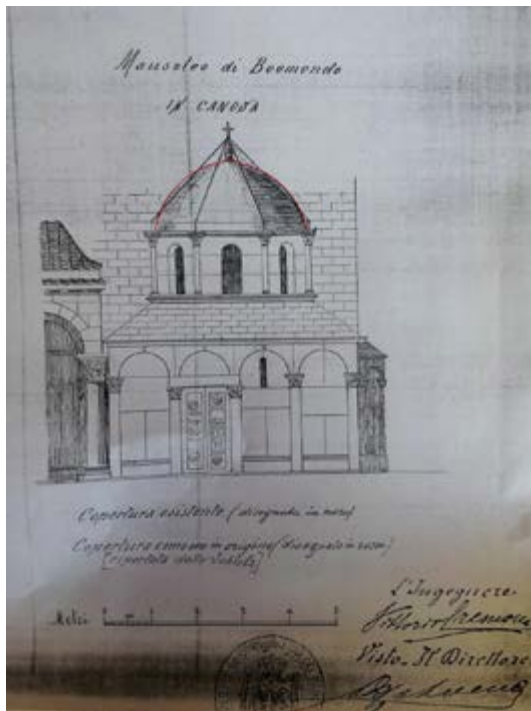 Mausoleo di Boemondo
IN CANOSA
Copertura esistente (disegnata in nero)
Copertura com'era in origine (disegnata in rosso)
[riportata dallo
Metri
L'Ingegnere
Vittorio
Visto - Il Direttore